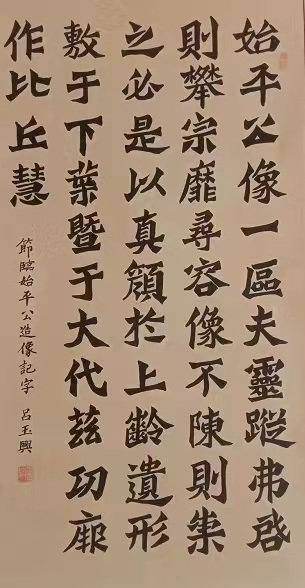 始平公像一區夫靈蹤弗啓
則攀宗靡尋容像不陳則崇
之必是以真顏於上齡遺形
敷于下葉暨于大代茲功厥
作比丘慧
節臨始平公造像記字 呂玉興